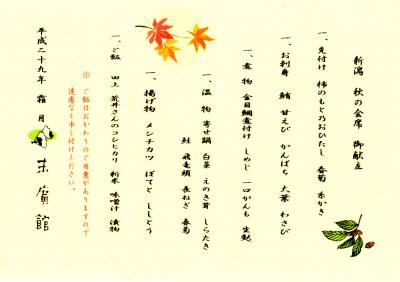 新潟 秋の会席 御献立
一、先付け 柿のもと乃おひたし 春菊 糸かき
一、お刺身 鯛 甘えび かんぱち 大葉 わさび
一、煮物 金目鯛煮付け しめじ 一口がんも 生麩
一、温物 寄せ鍋 白菜 えのき茸 しらたき
鮭 飛竜頭 長ねぎ 春菊
一、揚げ物 メンチカツ ぽてと ししとう
一、ご飯 田上 荒井さんのコシヒカリ 新米 味噌汁 漬物
※ ご飯はおかわりのご用意がありますので
遠慮なく申し付けください。
平成二十九年 霜月
末廣館